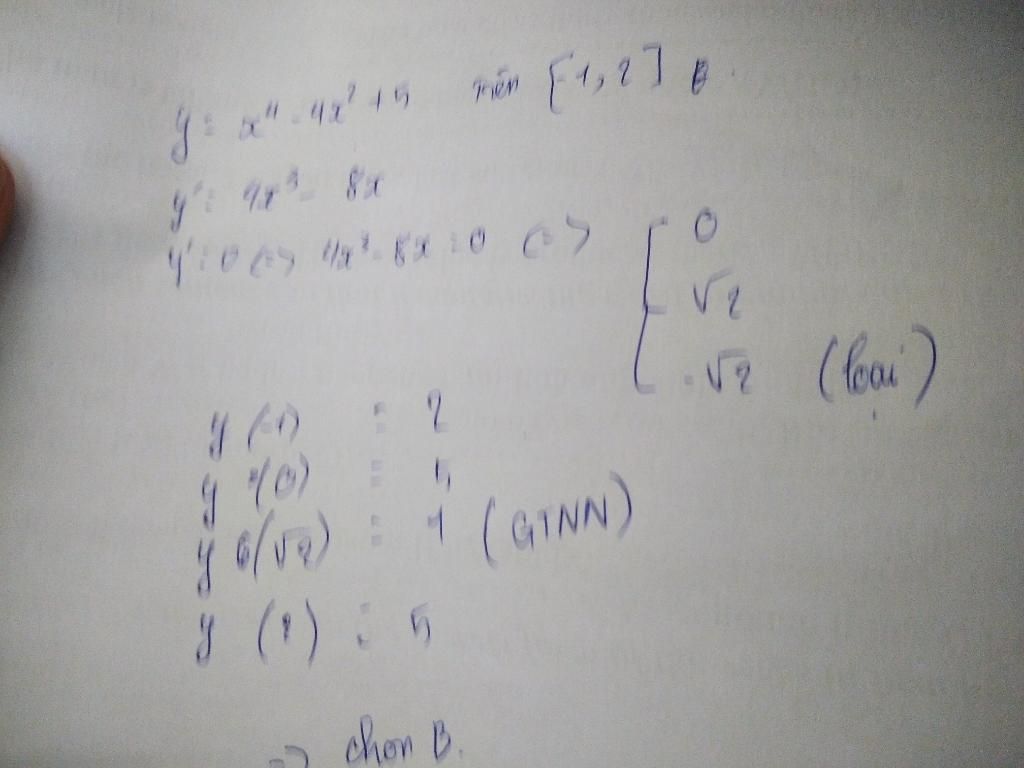 y = x⁴ - 4x² + 5 trên [-1, 2] B.
y' = 4x³ - 8x
y' = 0 <=> 4x³ - 8x = 0 <=> [ 0
√2
-√2 (loại)
y (-1) = 2
y (0) = 5
y (√2) = 1 (GTNN)
y (2) = 5
=> chọn B.